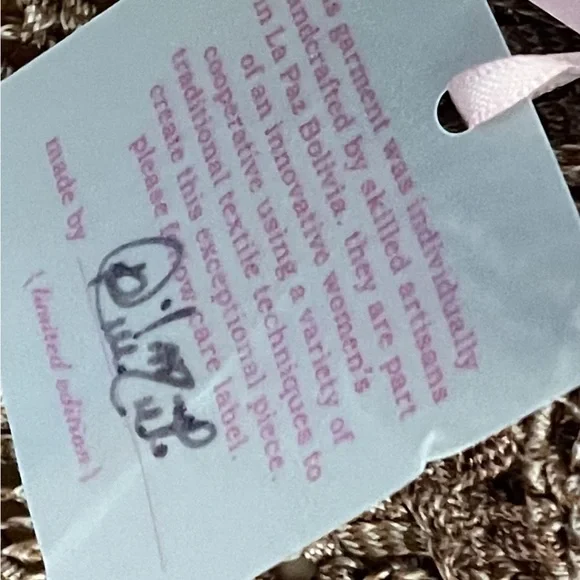 s garment was individually
andcrafted by skilled artisans
in La Paz Bolivia. they are part
of an innovative women's
cooperative using a variety of
traditional textile techniques to
create this exceptional piece.
please follow care label.
made by
(limited edition)